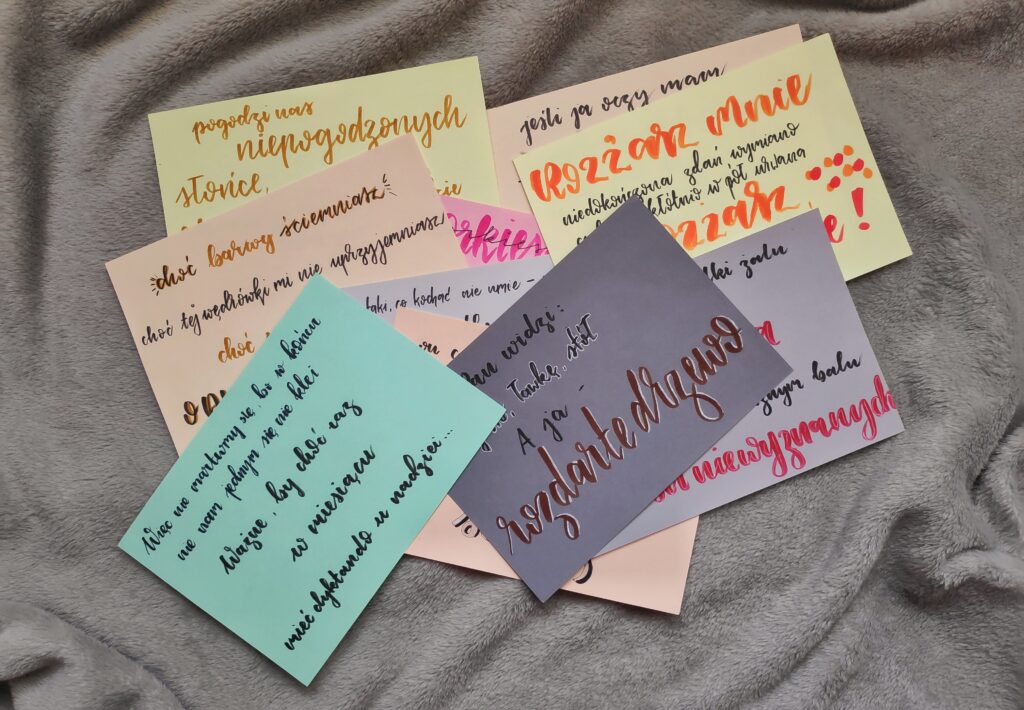 pogodzi nas
niepogodzonych
słońce,
jeśli ja oczy mam
Rozżarz mnie
niedokończona zdań wymiano
kłótnio w pół urwana
!
choć barwy ściemniasz
choć tej wędrówki mi nie uprzyjemniasz
choć
orkies
taki, co kochać nie umie –
żalu
balu
niewyznanych
widzi:
ławkę, stół
A ja –
rozdarte drzewo
Więc nie martwmy się, bo w końcu
nie nam jednym się nie klei
Ważne, by choć raz
w miesiącu
mieć dyktando u nadziei...